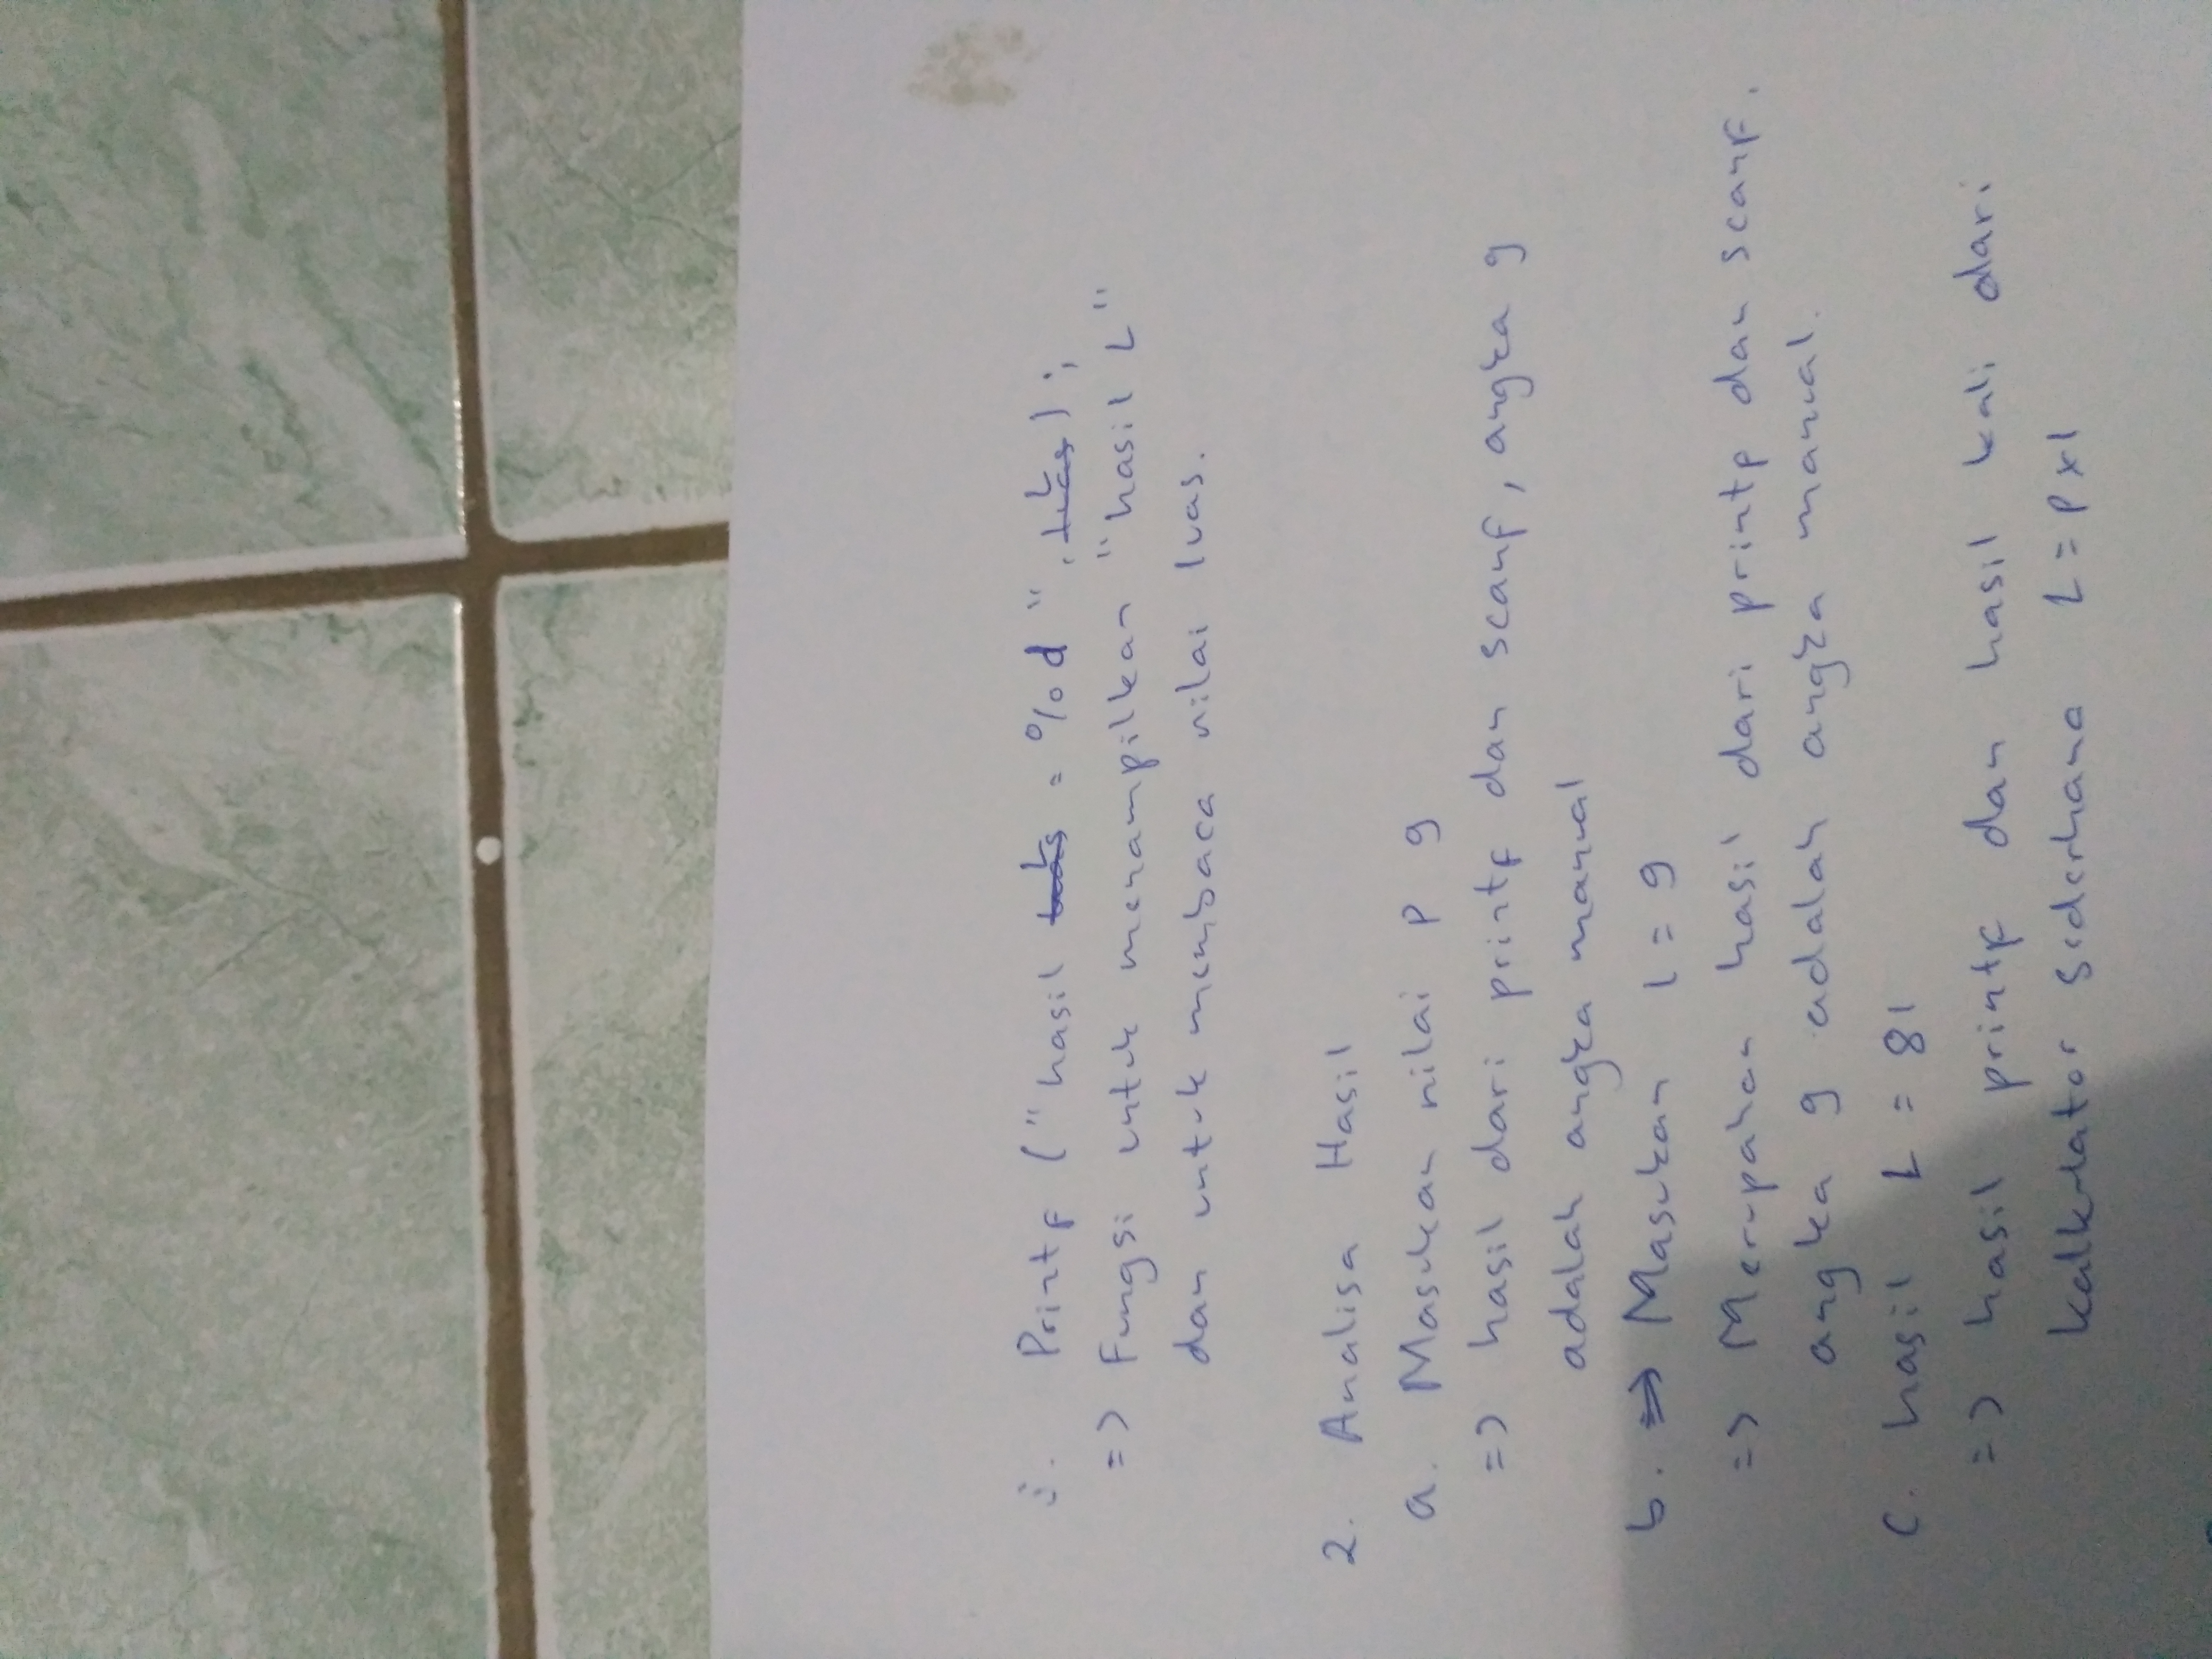 j. Printf ("hasil L = %d", L);
=> Fungsi untuk menampilkan "hasil L"
dan untuk membaca nilai luas.
2. Analisa Hasil
a. Masukan nilai P 9
=> hasil dari printf dan scanf, angka 9
adalah angka manual
b. Masukan l = 9
=> Merupakan hasil dari printp dan scanf.
angka 9 adalah angka manual.
c. hasil L = 81
=> hasil printf dan hasil kali dari
kalkulator sederhana L = P x l